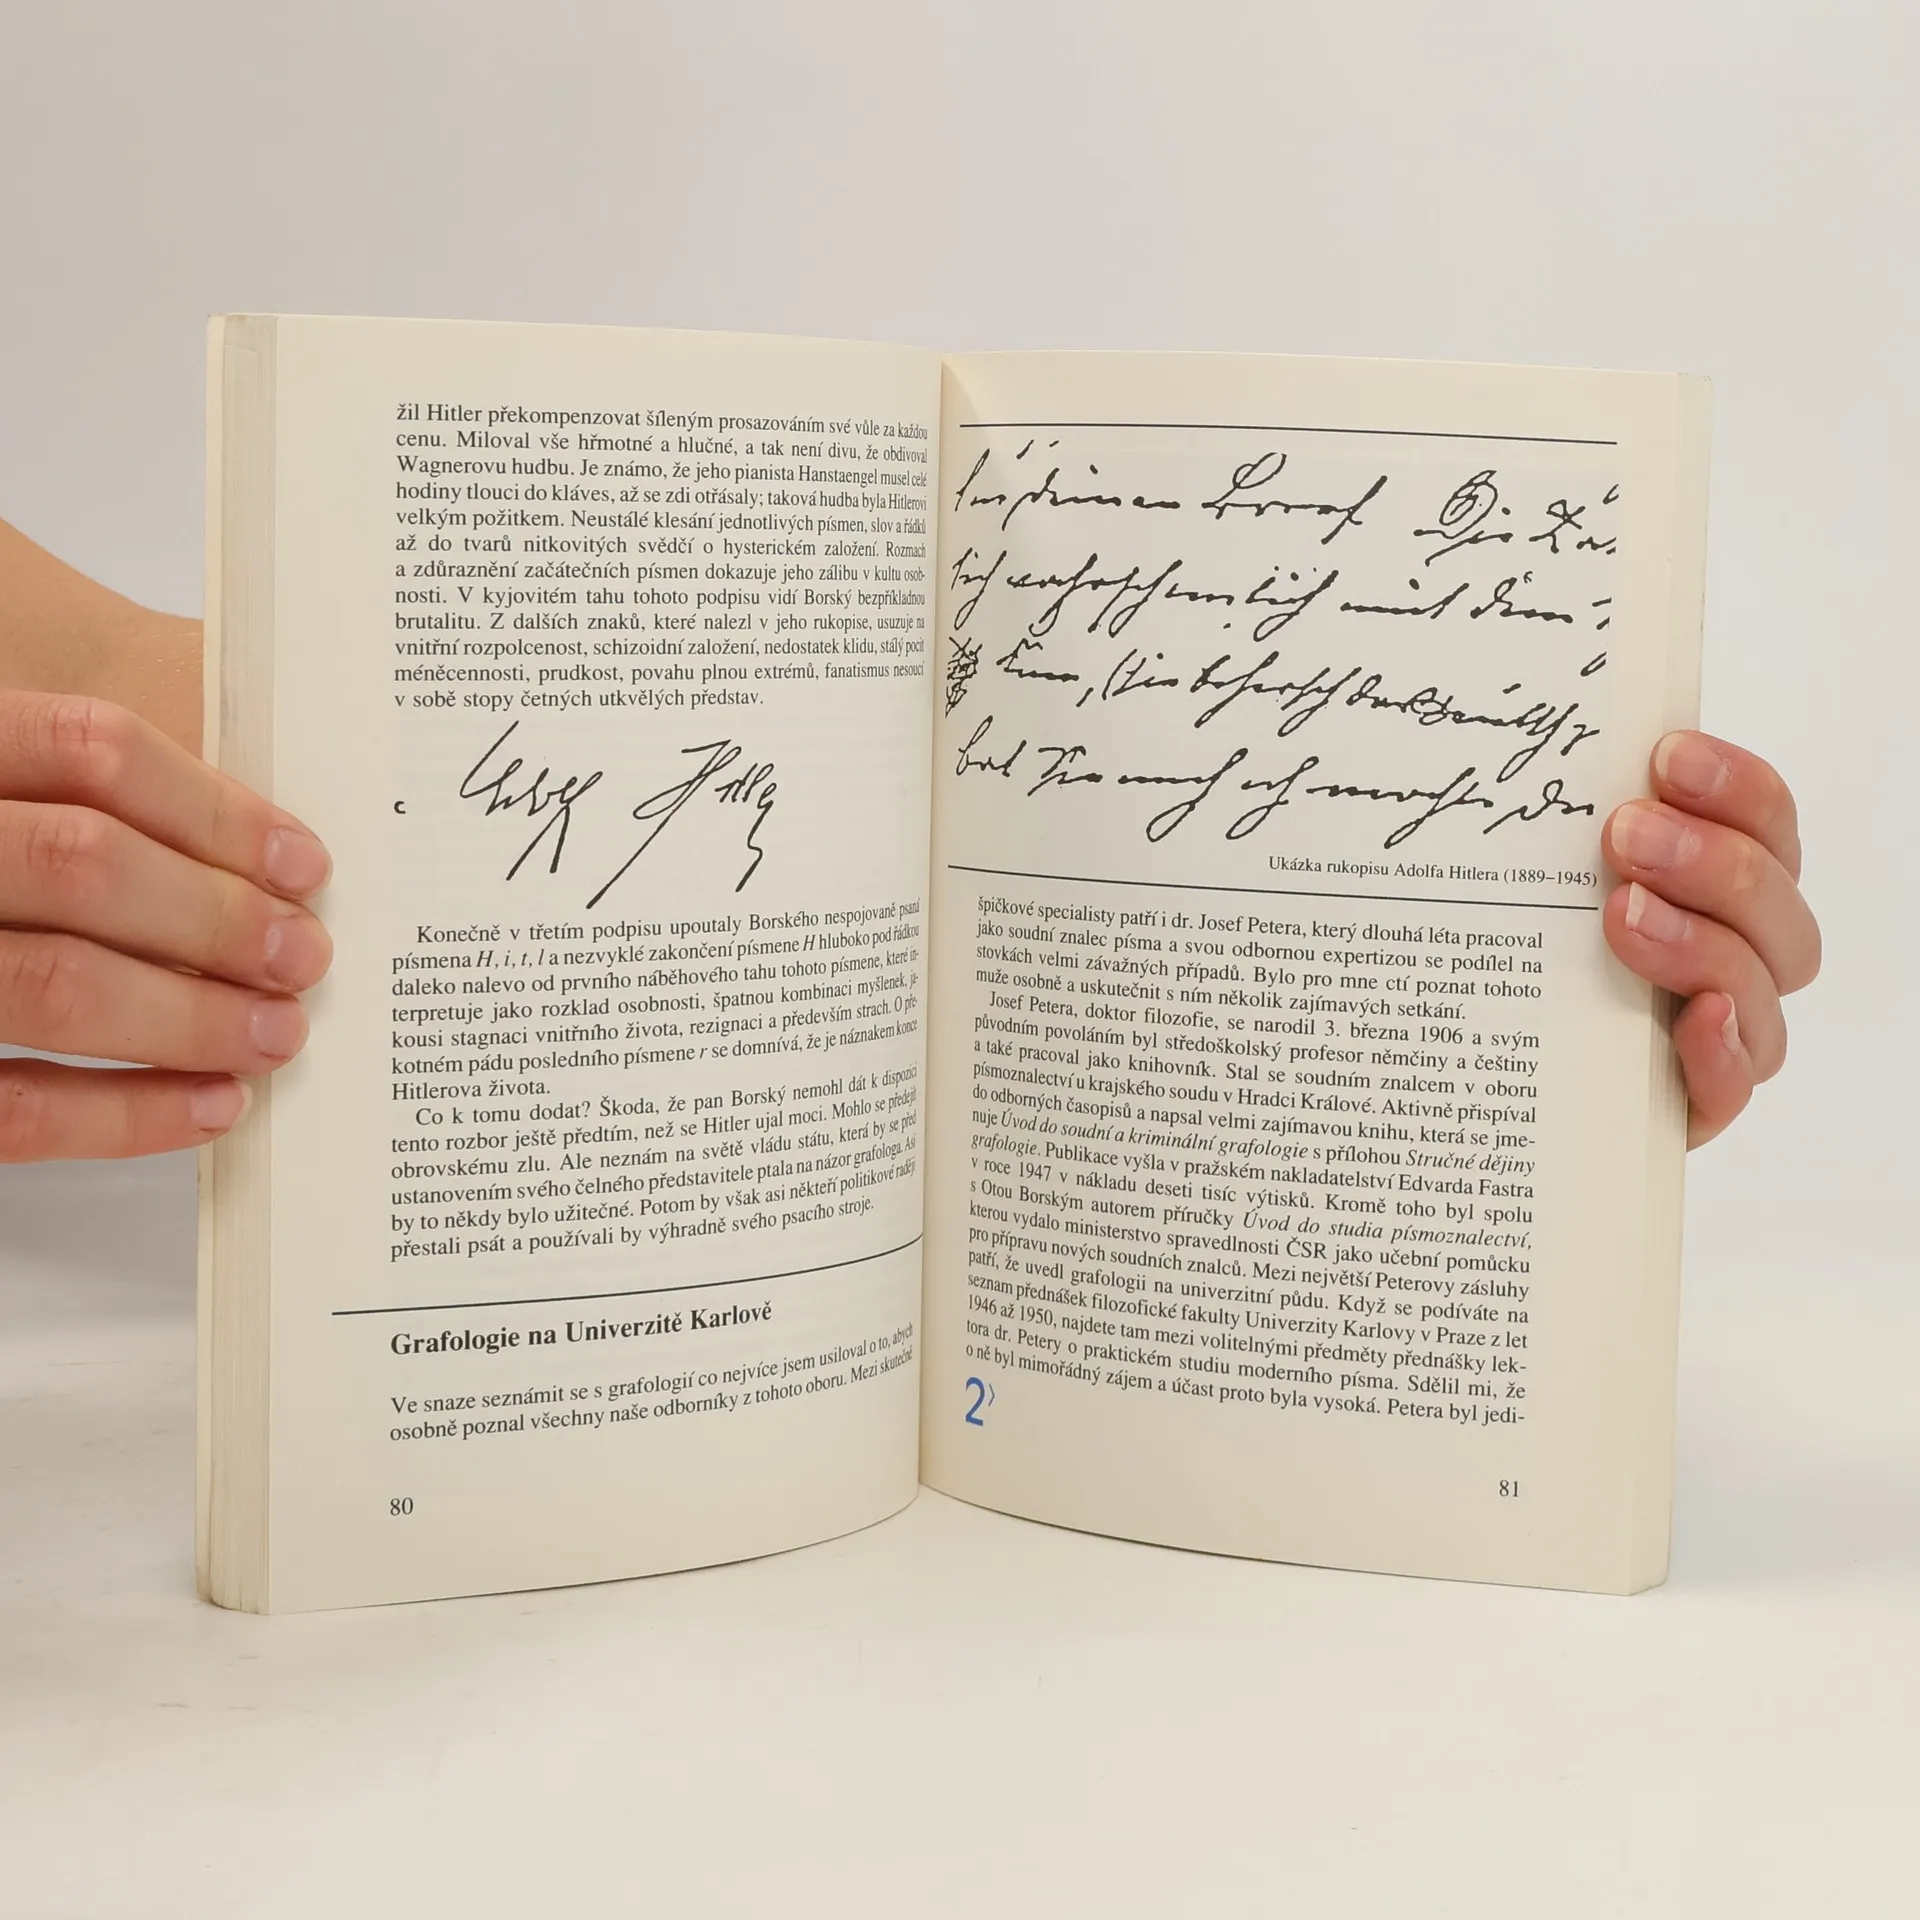 žil Hitler překompenzovat šíleným prosazováním své vůle za každou
cenu. Miloval vše hřmotné a hlučné, a tak není divu, že obdivoval
Wagnerovu hudbu. Je známo, že jeho pianista Hanstaengel musel celé
hodiny tlouci do kláves, až se zdi otřásaly; taková hudba byla Hitlerovi
velkým požitkem. Neustálé klesání jednotlivých písmen, slov a řádků
až do tvarů nitkovitých svědčí o hysterickém založení. Rozmach
a zdůraznění začátečních písmen dokazuje jeho zálibu v kultu osob-
nosti. V kyjovitém tahu tohoto podpisu vidí Borský bezpříkladnou
brutalitu. Z dalších znaků, které nalezl v jeho rukopise, usuzuje na
vnitřní rozpolcenost, schizoidní založení, nedostatek klidu, stálý pocit
méněcennosti, prudkost, povahu plnou extrémů, fanatismus nesoucí
v sobě stopy četných utkvělých představ.
c
Konečně v třetím podpisu upoutaly Borského nespojovaně psaná
písmena H, i, t, l a nezvyklé zakončení písmene H hluboko pod řádkou
daleko nalevo od prvního náběhového tahu tohoto písmene, které in-
terpretuje jako rozklad osobnosti, špatnou kombinaci myšlenek, ja-
kousi stagnaci vnitřního života, rezignaci a především strach. O pře-
kotném pádu posledního písmene r se domnívá, že je náznakem konce
Hitlerova života.
Co k tomu dodat? Škoda, že pan Borský nemohl dát k dispozici
tento rozbor ještě předtím, než se Hitler ujal moci. Mohlo se předejít
obrovskému zlu. Ale neznám na světě vládu státu, která by se před
ustanovením svého čelného představitele ptala na názor grafologa. Asi
by to někdy bylo užitečné. Potom by však asi někteří politikové raději
přestali psát a používali by výhradně svého psacího stroje.
Grafologie na Univerzitě Karlově
Ve snaze seznámit se s grafologií co nejvíce jsem usiloval o to, abych
osobně poznal všechny naše odborníky z tohoto oboru. Mezi skutečně
80
Ukázka rukopisu Adolfa Hitlera (1889–1945)
špičkové specialisty patří i dr. Josef Petera, který dlouhá léta pracoval
jako soudní znalec písma a svou odbornou expertizou se podílel na
stovkách velmi závažných případů. Bylo pro mne ctí poznat tohoto
muže osobně a uskutečnit s ním několik zajímavých setkání.
Josef Petera, doktor filozofie, se narodil 3. března 1906 a svým
původním povoláním byl středoškolský profesor němčiny a češtiny
a také pracoval jako knihovník. Stal se soudním znalcem v oboru
písmoznalectví u krajského soudu v Hradci Králové. Aktivně přispíval
do odborných časopisů a napsal velmi zajímavou knihu, která se jme-
nuje Úvod do soudní a kriminální grafologie s přílohou Stručné dějiny
grafologie. Publikace vyšla v pražském nakladatelství Edvarda Fastra
v roce 1947 v nákladu deseti tisíc výtisků. Kromě toho byl spolu
s Otou Borským autorem příručky Úvod do studia písmoznalectví,
kterou vydalo ministerstvo spravedlnosti ČSR jako učební pomůcku
pro přípravu nových soudních znalců. Mezi největší Peterovy zásluhy
patří, že uvedl grafologii na univerzitní půdu. Když se podíváte na
seznam přednášek filozofické fakulty Univerzity Karlovy v Praze z let
1946 až 1950, najdete tam mezi volitelnými předměty přednášky lek-
tora dr. Petery o praktickém studiu moderního písma. Sdělil mi, že
o ně byl mimořádný zájem a účast proto byla vysoká. Petera byl jedi-
2
81